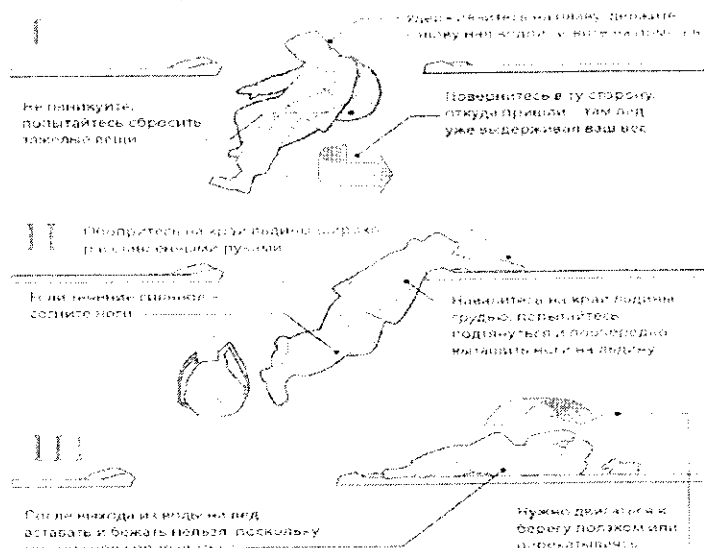 I
Удерживайтесь на плаву, держите
голову над водой, зовите на помощь
Не паникуйте,
попытайтесь сбросить
тяжелые вещи
Повернитесь в ту сторону,
откуда пришли – там лед
уже выдерживал ваш вес
II
Обопритесь на край льдины широко
расставленными руками
Если течение сильное –
согните ноги
Навалитесь на край льдины
грудью, попытайтесь
подтянуться и поочередно
вытащить ноги на льдину
III
После выхода из воды на лед
вставать и бежать нельзя, поскольку
Нужно двигаться к
берегу ползком или
перекатываясь